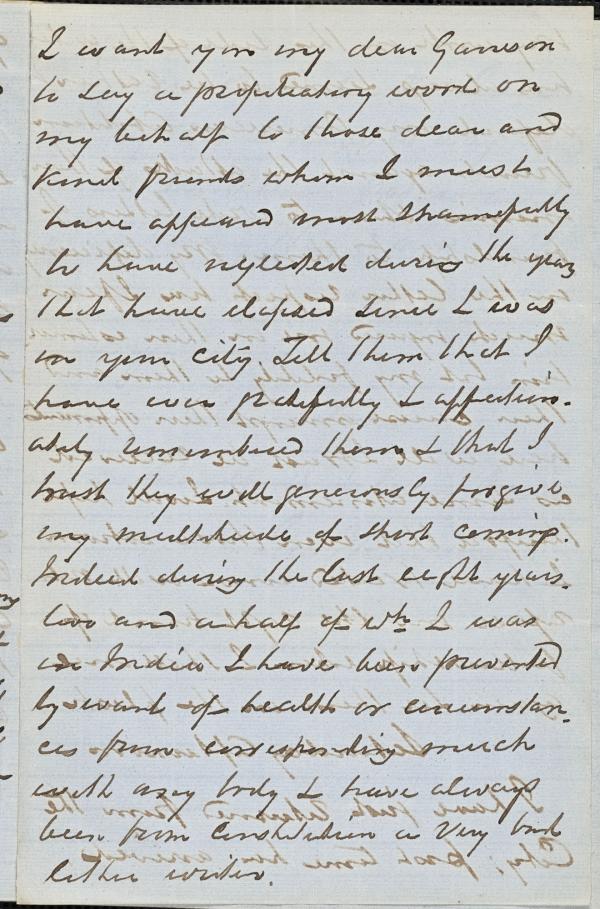 I want you my dear Garrison
to say a propitiatory word on
my behalf to those dear and
kind friends whom I must
have appeared most shamefully
to have neglected during the years
that have elapsed since I was
in your city. Tell them that I
have ever gratefully & affection-
ately remembered them & that I
trust they will generously forgive
my multitude of short comings.
Indeed during the last eight years.
two and a half of wh I was
in India I have been prevented
by want of health or circumstan-
ces from corresponding much
with any body & have always
been from constitution a very bad
letter writer.